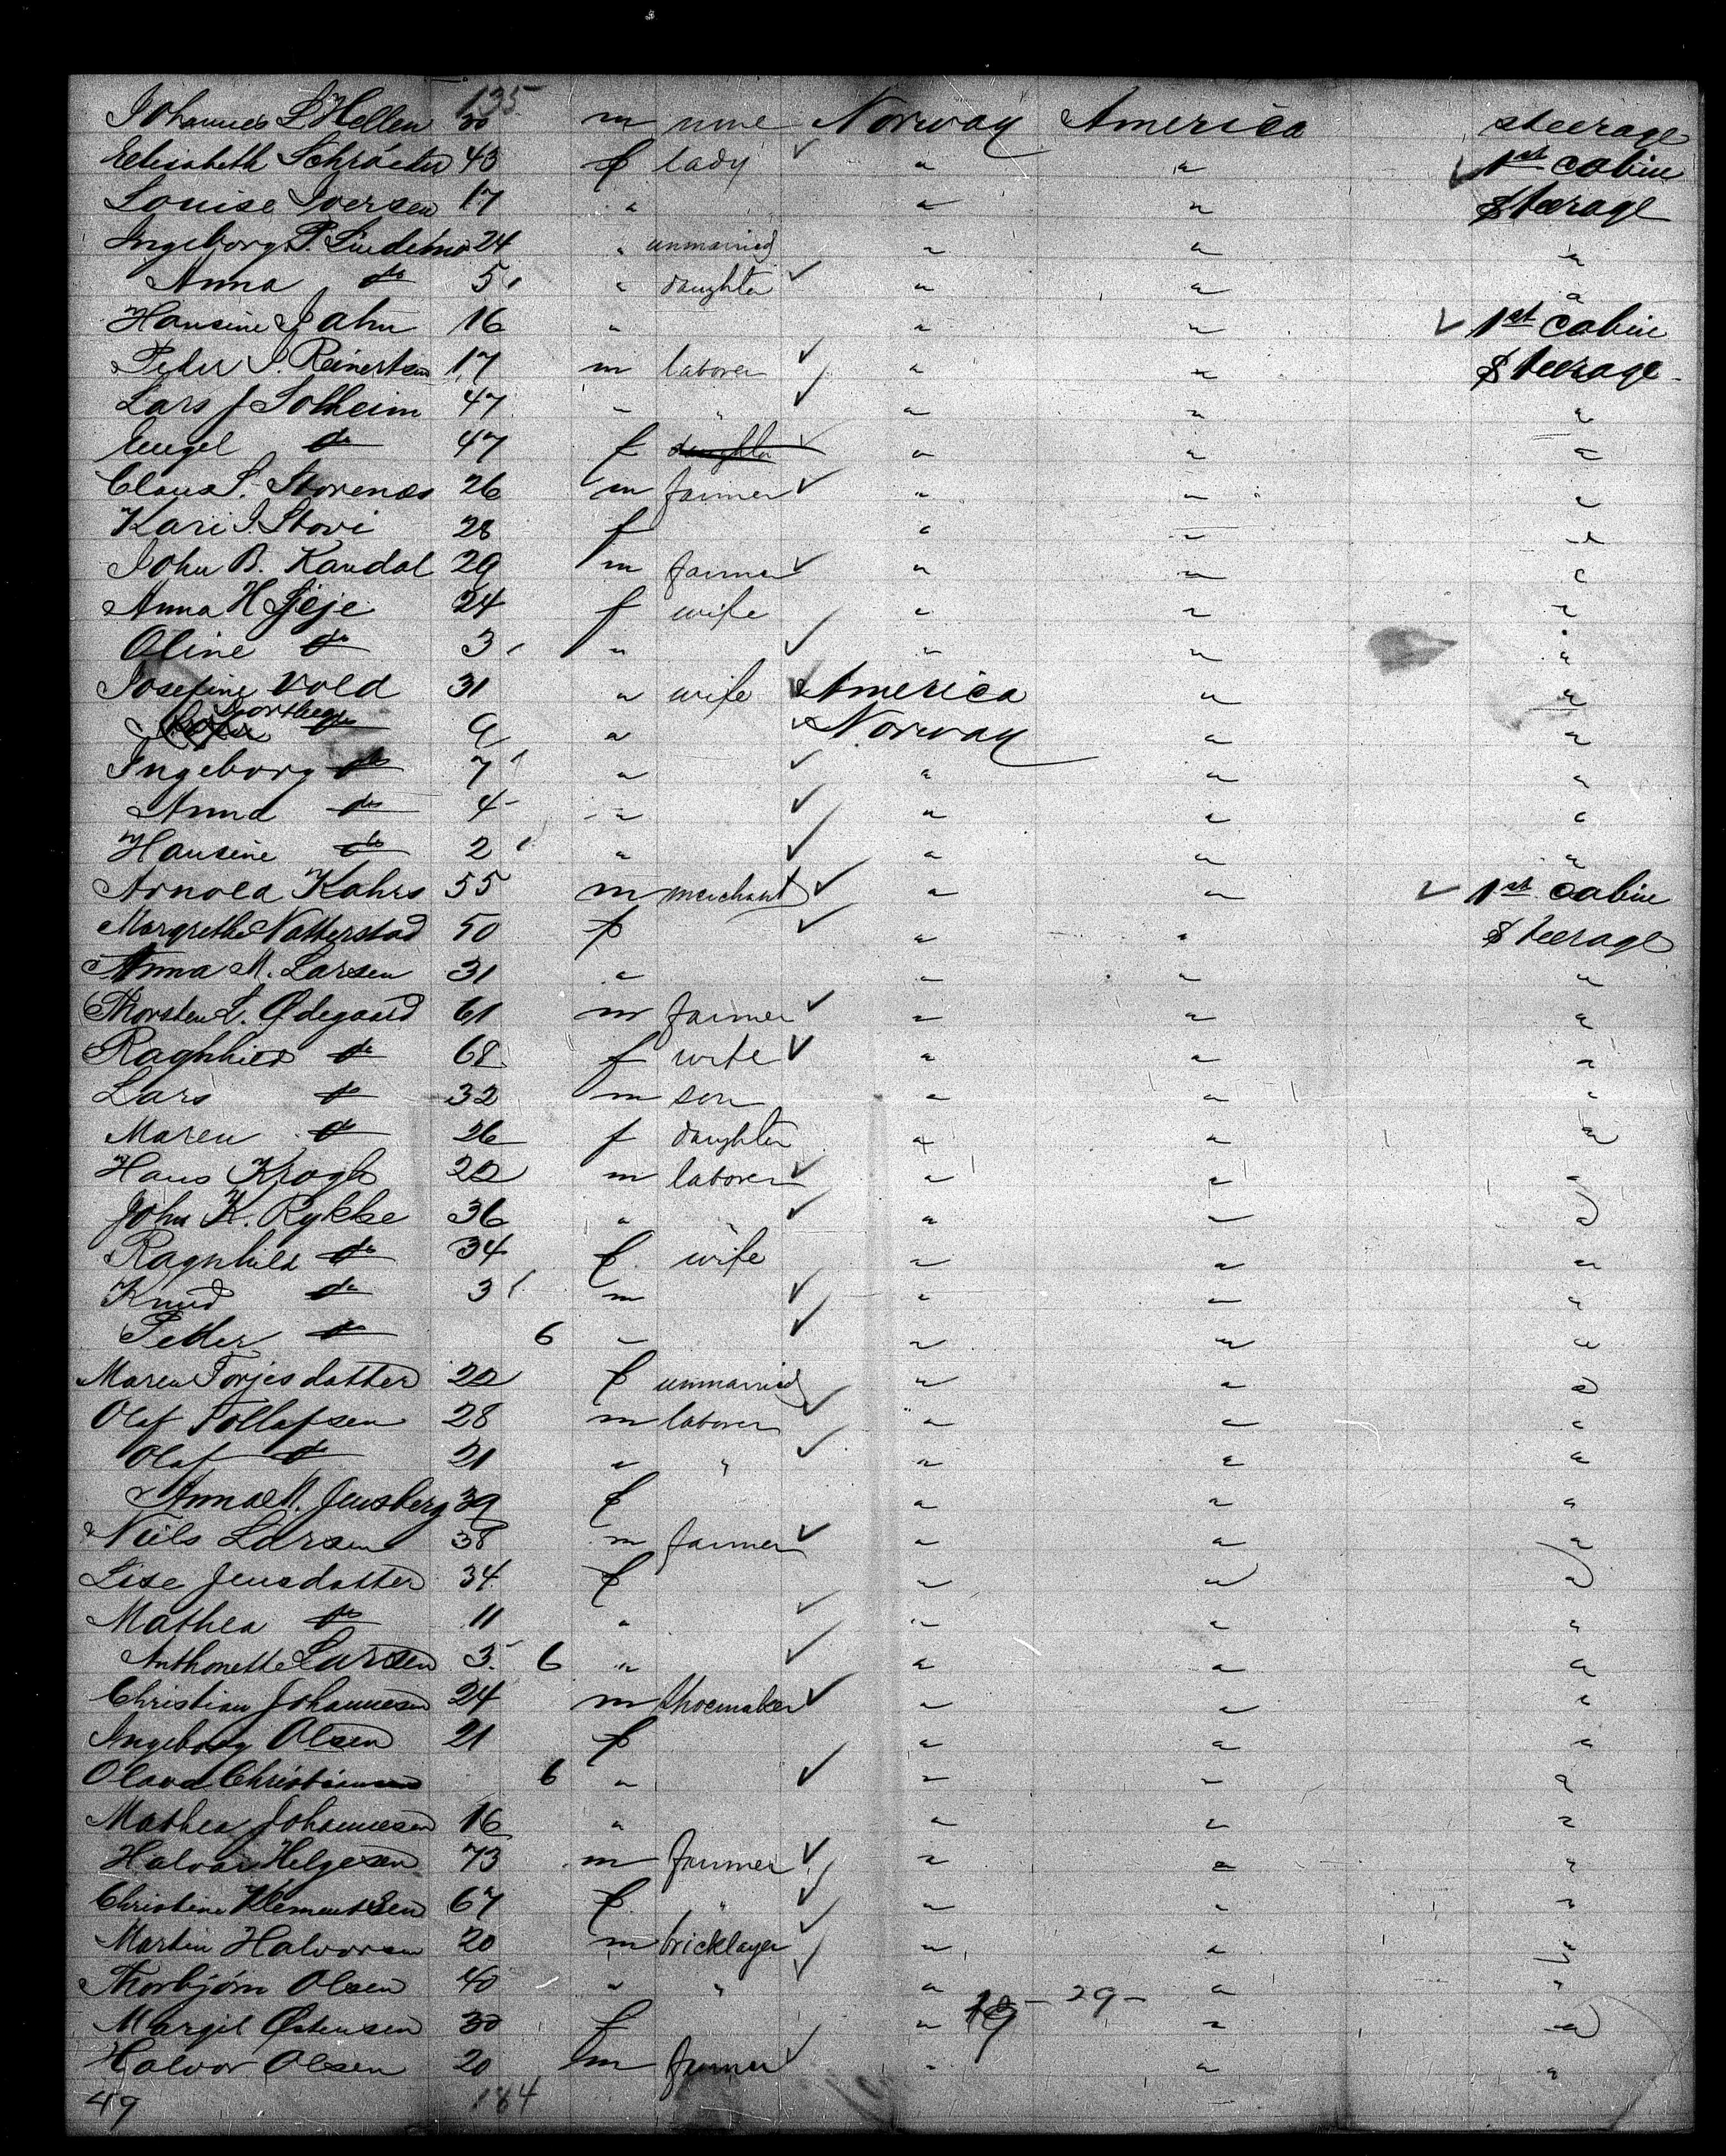 135
Johannes L Hellen 20 m none Norway America steerage
Elisabeth Schröeter 43 f lady " " 1st cabin
Louise Iversen 17 " " " Steerage
Ingeborg P. 24 " unmarried " " "
Anna do 5 " daughter " " "
Hansine Jahn 16 " " " 1st cabin
Peter I. Reinertsen 17 m laborer " " Steerage
Lars J Solheim 47 " " " " "
Engel do 47 f daughter " " "
Claus S. Storenes 26 m farmer " " "
Kari I. Stovi 28 f " " "
John B. Kandal 29 m farmer " " "
Anna H 24 f wife " " "
Oline do 3 " " " "
Josefine Vold 31 " wife America " "
do 9 " Norway " "
Ingeborg do 7 " " " "
Anna do 4 " " " "
Hansine do 2 " " " "
Arnold Kahrs 55 m merchant " " 1st cabin
Margrethe Natterstad 50 f " " Steerage
Anna M. Larsen 31 " " " "
Thorsten L. Ødegaard 61 m farmer " " "
Raghnhild do 68 f wife " " "
Lars do 32 m son " " "
Maren do 26 f daughter " " "
Hans Krogh 22 m laborer " " "
John K. Rykke 36 " " " " "
Ragnhild do 34 f wife " " "
Knud do 3 m " " "
Petter do 6 " " " "
Maren Torjesdatter 22 f unmarried " " "
Olaf Tollafsen 28 m laborer " " "
Olaf do 21 " " " " "
Anna M. Jensberg 39 f " " "
Niels Larsen 38 m farmer " " "
Lise Jensdatter 34 f " " "
Mathea do 11 " " " "
Anthonette Larsen 3 6 " " " "
Christian Johannesen 24 m shoemaker " " "
Ingeborg Olsen 21 f " " "
Olava Christiansen 6 " " " "
Mathea Johannesen 16 " " " "
Halvor Helgesen 73 m farmer " " "
Christine Klementsen 67 f " " " "
Martin Halvorsen 20 m bricklayer " " "
Thorbjörn Olsen 40 " " " " "
19 - 29 -
Margit Østensen 30 f " " "
Halvor Olsen 20 m farmer " " "
49 184